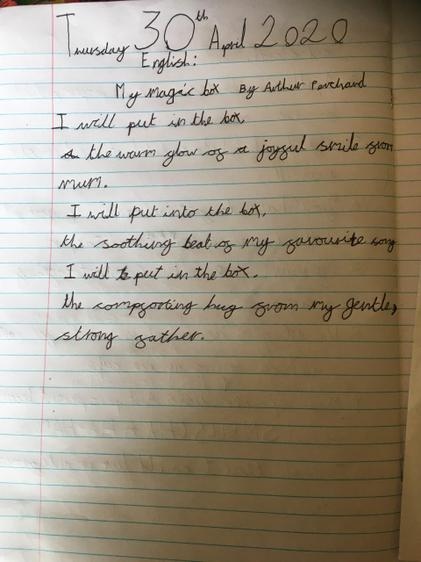 Thursday 30th April 2020
English:
My magic box By Arthur Perchard
I will put in the box,
the warm glow of a joyful smile from
mum.
I will put into the box,
the soothing beat of my favourite song
I will put in the box.
the compforting hug from my gentle,
strong father.